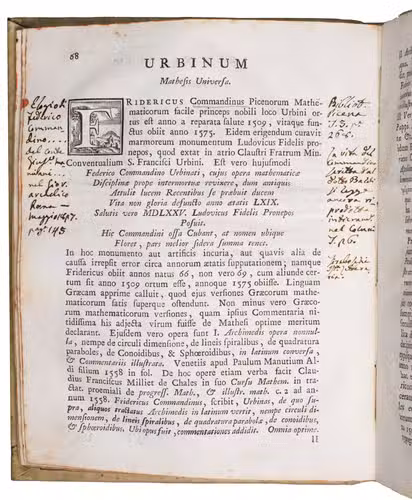 68
URBINUM
Mathesis Universa.
FRIDERICUS Commandinus Picenorum Mathe-
maticorum facile princeps nobili loco Urbini or-
tus est anno a reparata salute 1509, vitaque fun-
ctus obiit anno 1575. Eidem erigendum curavit
marmoreum monumentum Ludovicus Fidelis pro-
nepos, quod extat in atrio Claustri Fratrum Min.
Conventualium S. Francisci Urbini. Est vero hujusmodi
Federico Commandino Urbinati, cujus opera mathematicæ
Disciplinæ prope intermortuæ revixere, dum antiquis
Ætulit lucem Recentibus se præbuit ducem
Vita non gloria defuncto anno ætatis LXIX.
Salutis vero MDLXXV. Ludovicus Fidelis Pronepos
Posuit.
Hic Commandini ossa Cubant, at nomen ubique
Floret, pars melior sidera summa tenet.
In hoc monumento aut artificis incuria, aut quavis alia de
causa irrepsit error circa annorum ætatis supputationem; namque
Fridericus obiit annos natus 66, non vero 69, cum aliunde cer-
tum sit anno 1509 ortum esse, annoque 1575 obiisse. Linguam
Græcam apprime calluit, quod ejus versiones Græcorum mathe-
maticorum satis superque ostendunt. Non minus vero Græco-
rum mathematicorum versiones, quam ipsus Commentaria ni-
tidissima his adjecta virum fuisse de Mathesi optime meritum
declarant. Ejusdem vero opera sunt I. Archimedis opera nonnul-
la, nempe de circuli dimensione, de lineis spiralibus, de quadratura
parabolæ, de Conoidibus, & Sphæroidibus, in latinum conversa,
& Commentariis illustrata. Venetiis apud Paulum Manutium Al-
di filium 1558 in fol. De hoc opere etiam verba facit Clau-
dius Franciscus Milliet de Chales in suo Cursu Mathem. in tra-
ctat. proemiali de progress. Math., & illustr. math. c. 2 ad an-
num 1558. Fridericus Commandinus, scribit, Urbinas, de quo su-
pra, aliquos tractatus Archimedis in latinum vertit, nempe circuli di-
mensionem, de lineis spiralibus, de quadratura parabolæ, de conoidibus,
& sphæroidibus. Ubi opus fuit, commentationes addidit. Omnia optime.
II